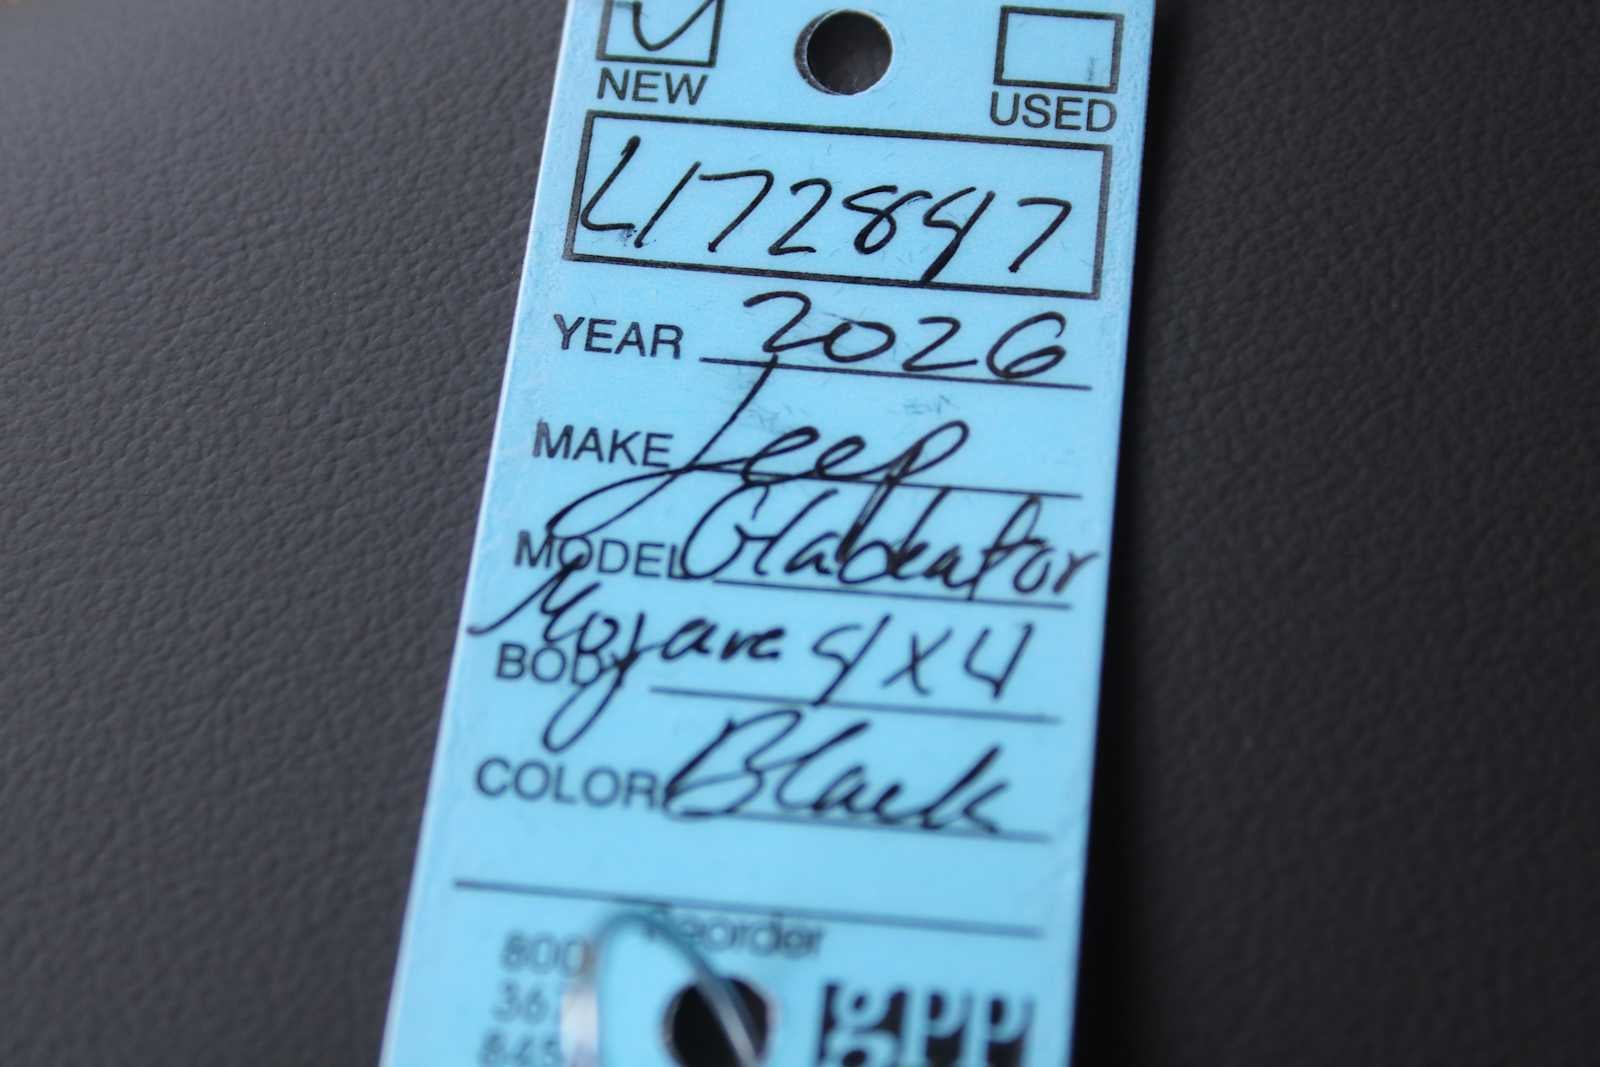 NEW USED
L172847
YEAR 2026
MAKE Jeep
MODEL Gladiator
BODY Mojave 4x4
COLOR Black
Reorder
800
36
845
gpp